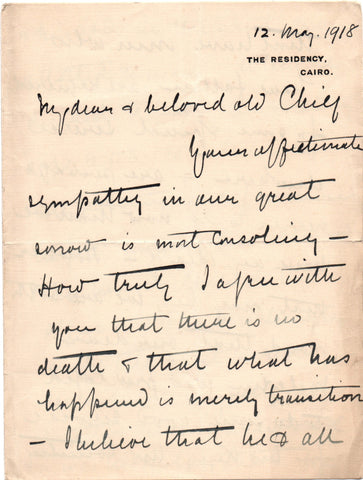 12. May. 1918
THE RESIDENCY,
CAIRO.
My dear & beloved old Chief
Your affectionate
sympathy in our great
sorrow is most consoling –
How truly I agree with
you that there is no
death & that what has
happened is merely transition
– I believe that he & all